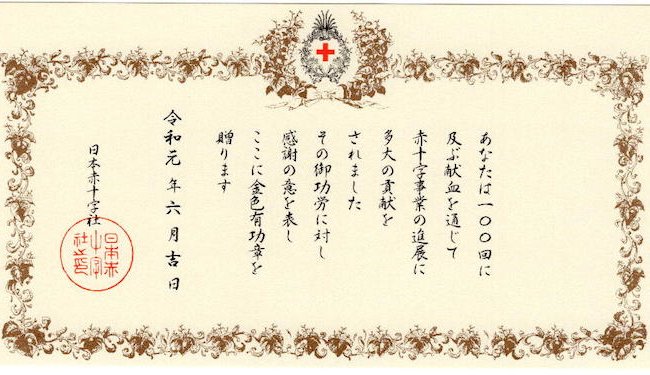 あなたは一〇〇回に
及ぶ献血を通じて
赤十字事業の進展に
多大の貢献を
されました
その御功労に対し
感謝の意を表し
ここに金色有功章を
贈ります
令和元年六月吉日
日本赤十字社
日本赤
十字
社之印